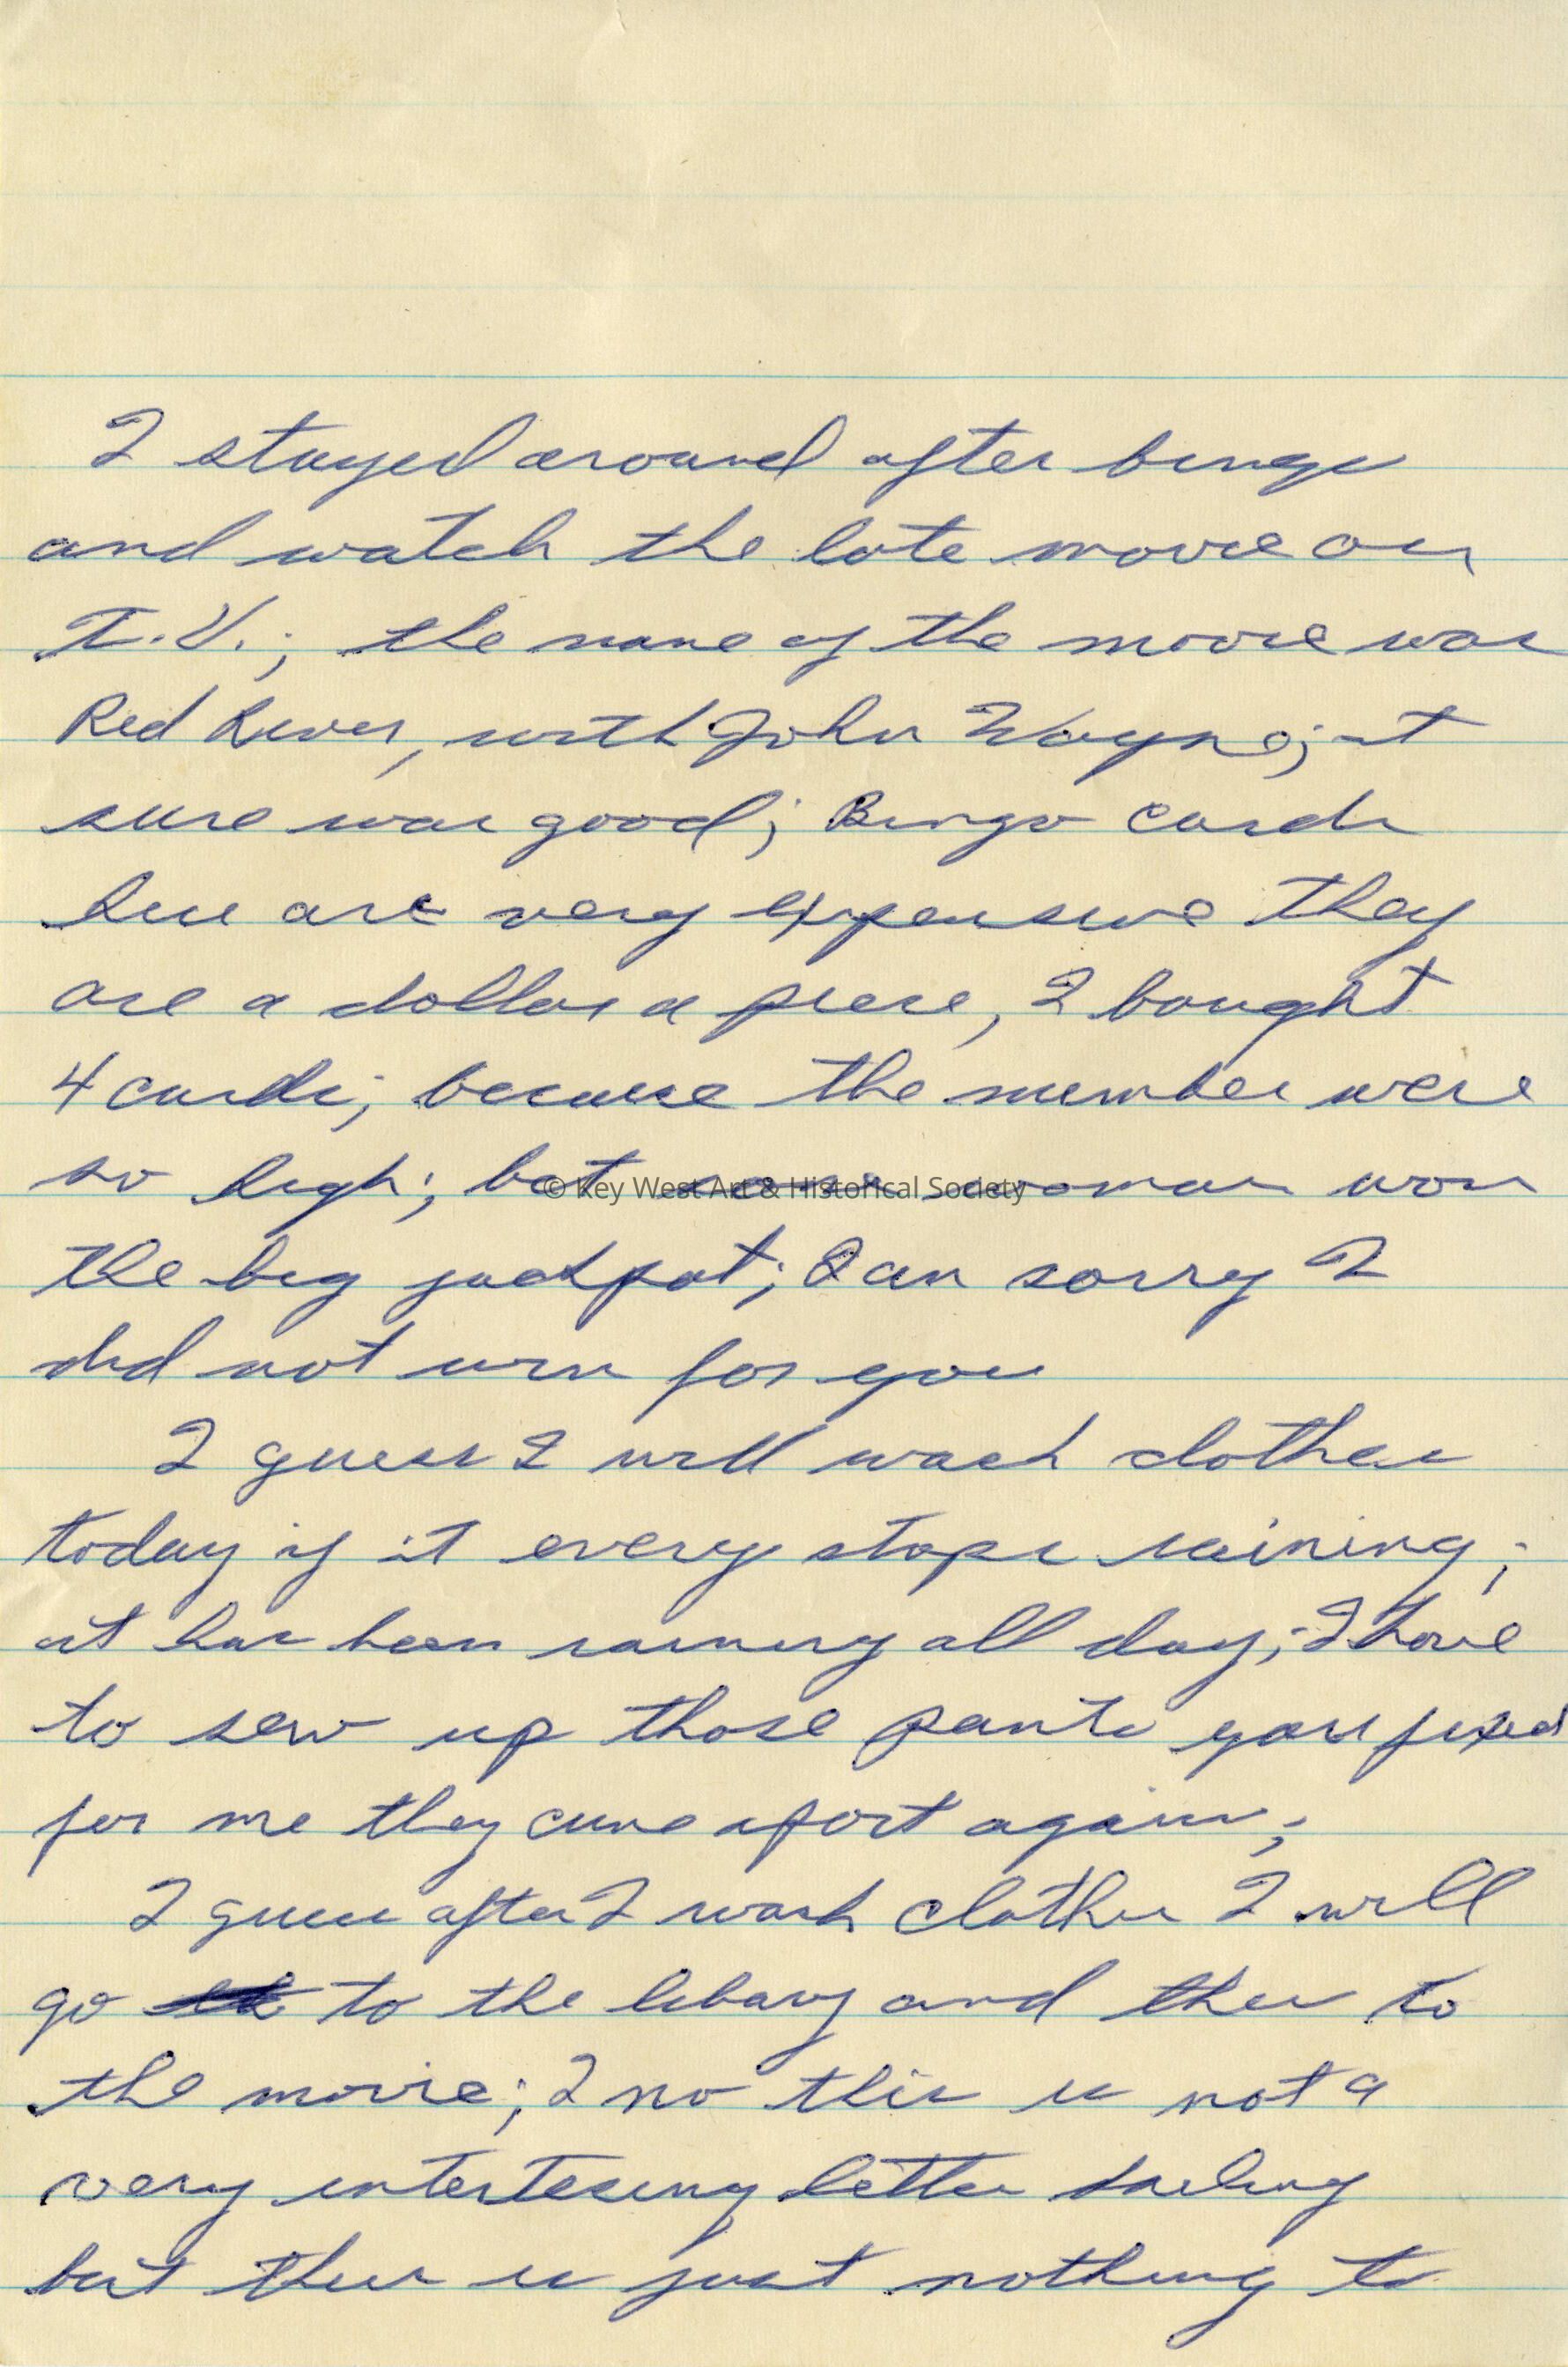 I stayed around after bingo
and watch the late movie on
T.V.; the name of the movie was
Red River, with John Wayne; it
sure was good; Bingo cards
here are very expensive they
are a dollar a piece, I bought
4 cards; because the number were
so high; but some woman won
© Key West Art & Historical Society
the big jackpot; I am sorry I
did not win for you
I guess I will wash clothes
today if it every stops raining;
it has been raining all day; I have
to sew up those pants you fixed
for me they came apart again;
I guess after I wash clothes I will
go to the libary and then to
the movie; I no this is not a
very intertesing letter darling
but there is just nothing to